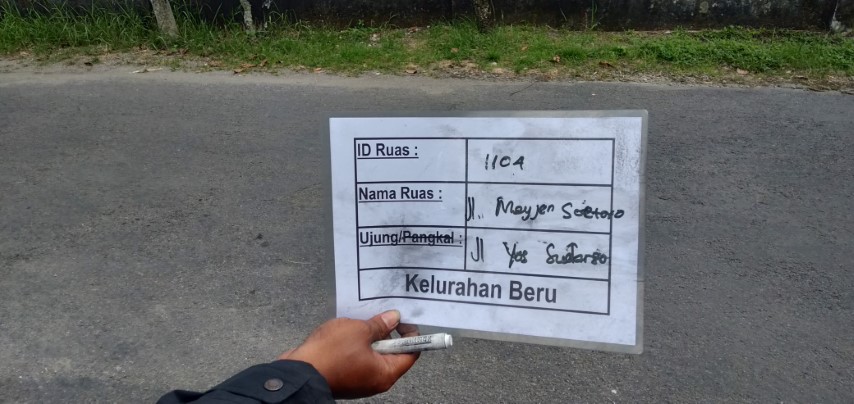 ID Ruas : 1104
Nama Ruas : Jl. Mayjen Soetoyo
Ujung/Pangkal : Jl Yos Sudarso
Kelurahan Beru